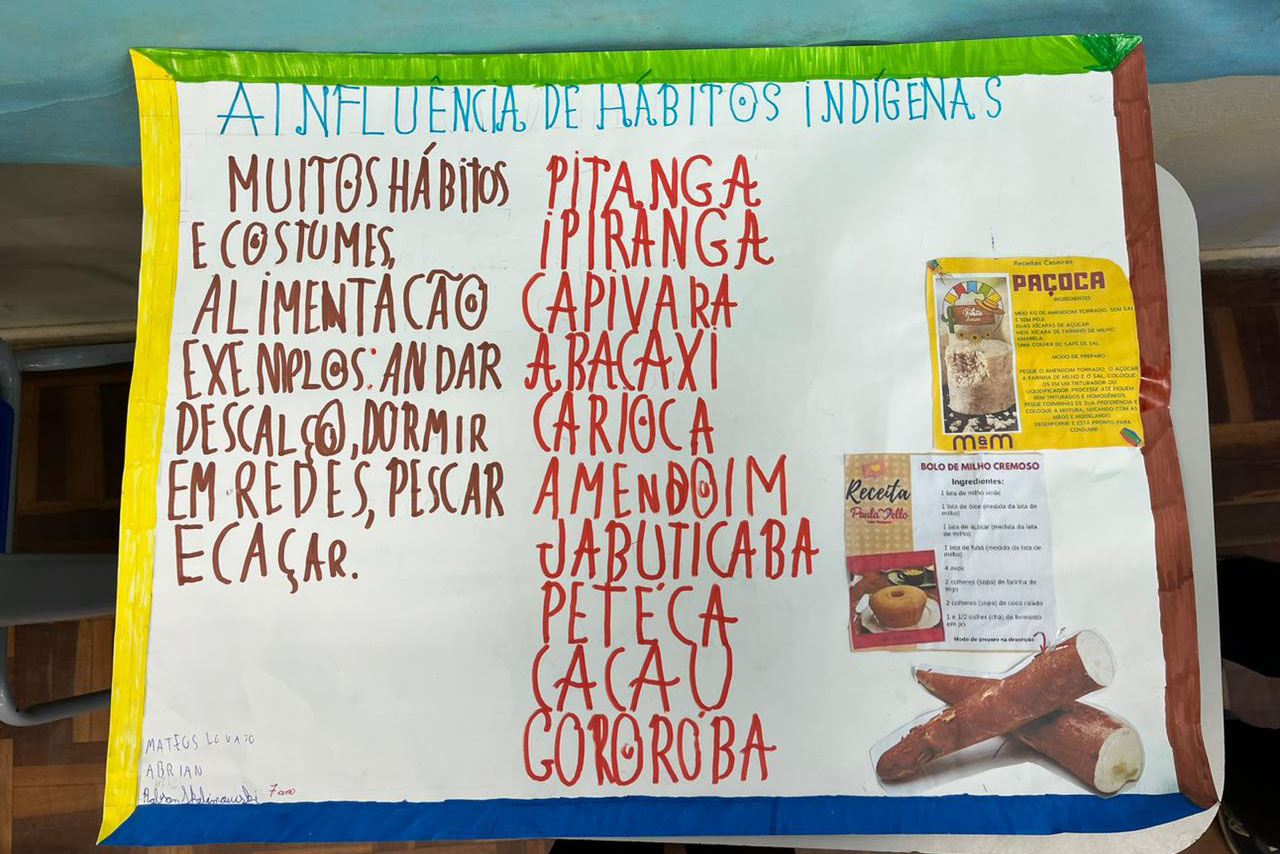 A INFLUÊNCIA DE HÁBITOS INDÍGENAS
MUITOS HÁBITOS
E COSTUMES,
ALIMENTACÃO
EXEMPLOS: ANDAR
DESCALÇO, DORMIR
EM REDES, PESCAR
E CAÇAR.
PITANGA
IPIRANGA
CAPIVARA
ABACAXI
CARIOCA
AMENDOIM
JABUTICABA
PETECA
CACAU
GOROROBA
Receitas Caseiras
PAÇOCA
INGREDIENTES
MEIO KG DE AMENDOIM TORRADO, SEM SAL
E SEM PELE
DUAS XÍCARAS DE AÇÚCAR
MEIA XÍCARA DE FARINHA DE MILHO
AMARELA
UMA COLHER DE CAFÉ DE SAL
MODO DE PREPARO
PEGUE O AMENDOIM TORRADO, O AÇÚCAR,
A FARINHA DE MILHO E O SAL, COLOQUE-
OS EM UM TRITURADOR OU
LIQUIDIFICADOR. PROCESSE ATÉ FIQUEM
BEM TRITURADOS E HOMOGÊNEOS
PEGUE FORMINHAS DE SUA PREFERÊNCIA E
COLOQUE A MISTURA, SOCANDO COM AS
MÃOS E MODELANDO
DESENFORME E ESTÁ PRONTO PARA
CONSUMIR
M&M
Receita
Paula Tello
BOLO DE MILHO CREMOSO
Ingredientes:
1 lata de milho verde
1 lata de óleo (medida da lata de
milho)
1 lata de açúcar (medida da lata
de milho)
1 lata de fubá (medida da lata de
milho)
4 ovos
2 colheres (sopa) de farinha de
trigo
2 colheres (sopa) de coco ralado
1 e 1/2 colher (chá) de fermento
em pó
Modo de preparo na descrição
MATEUS
ADRIAN
7 ano